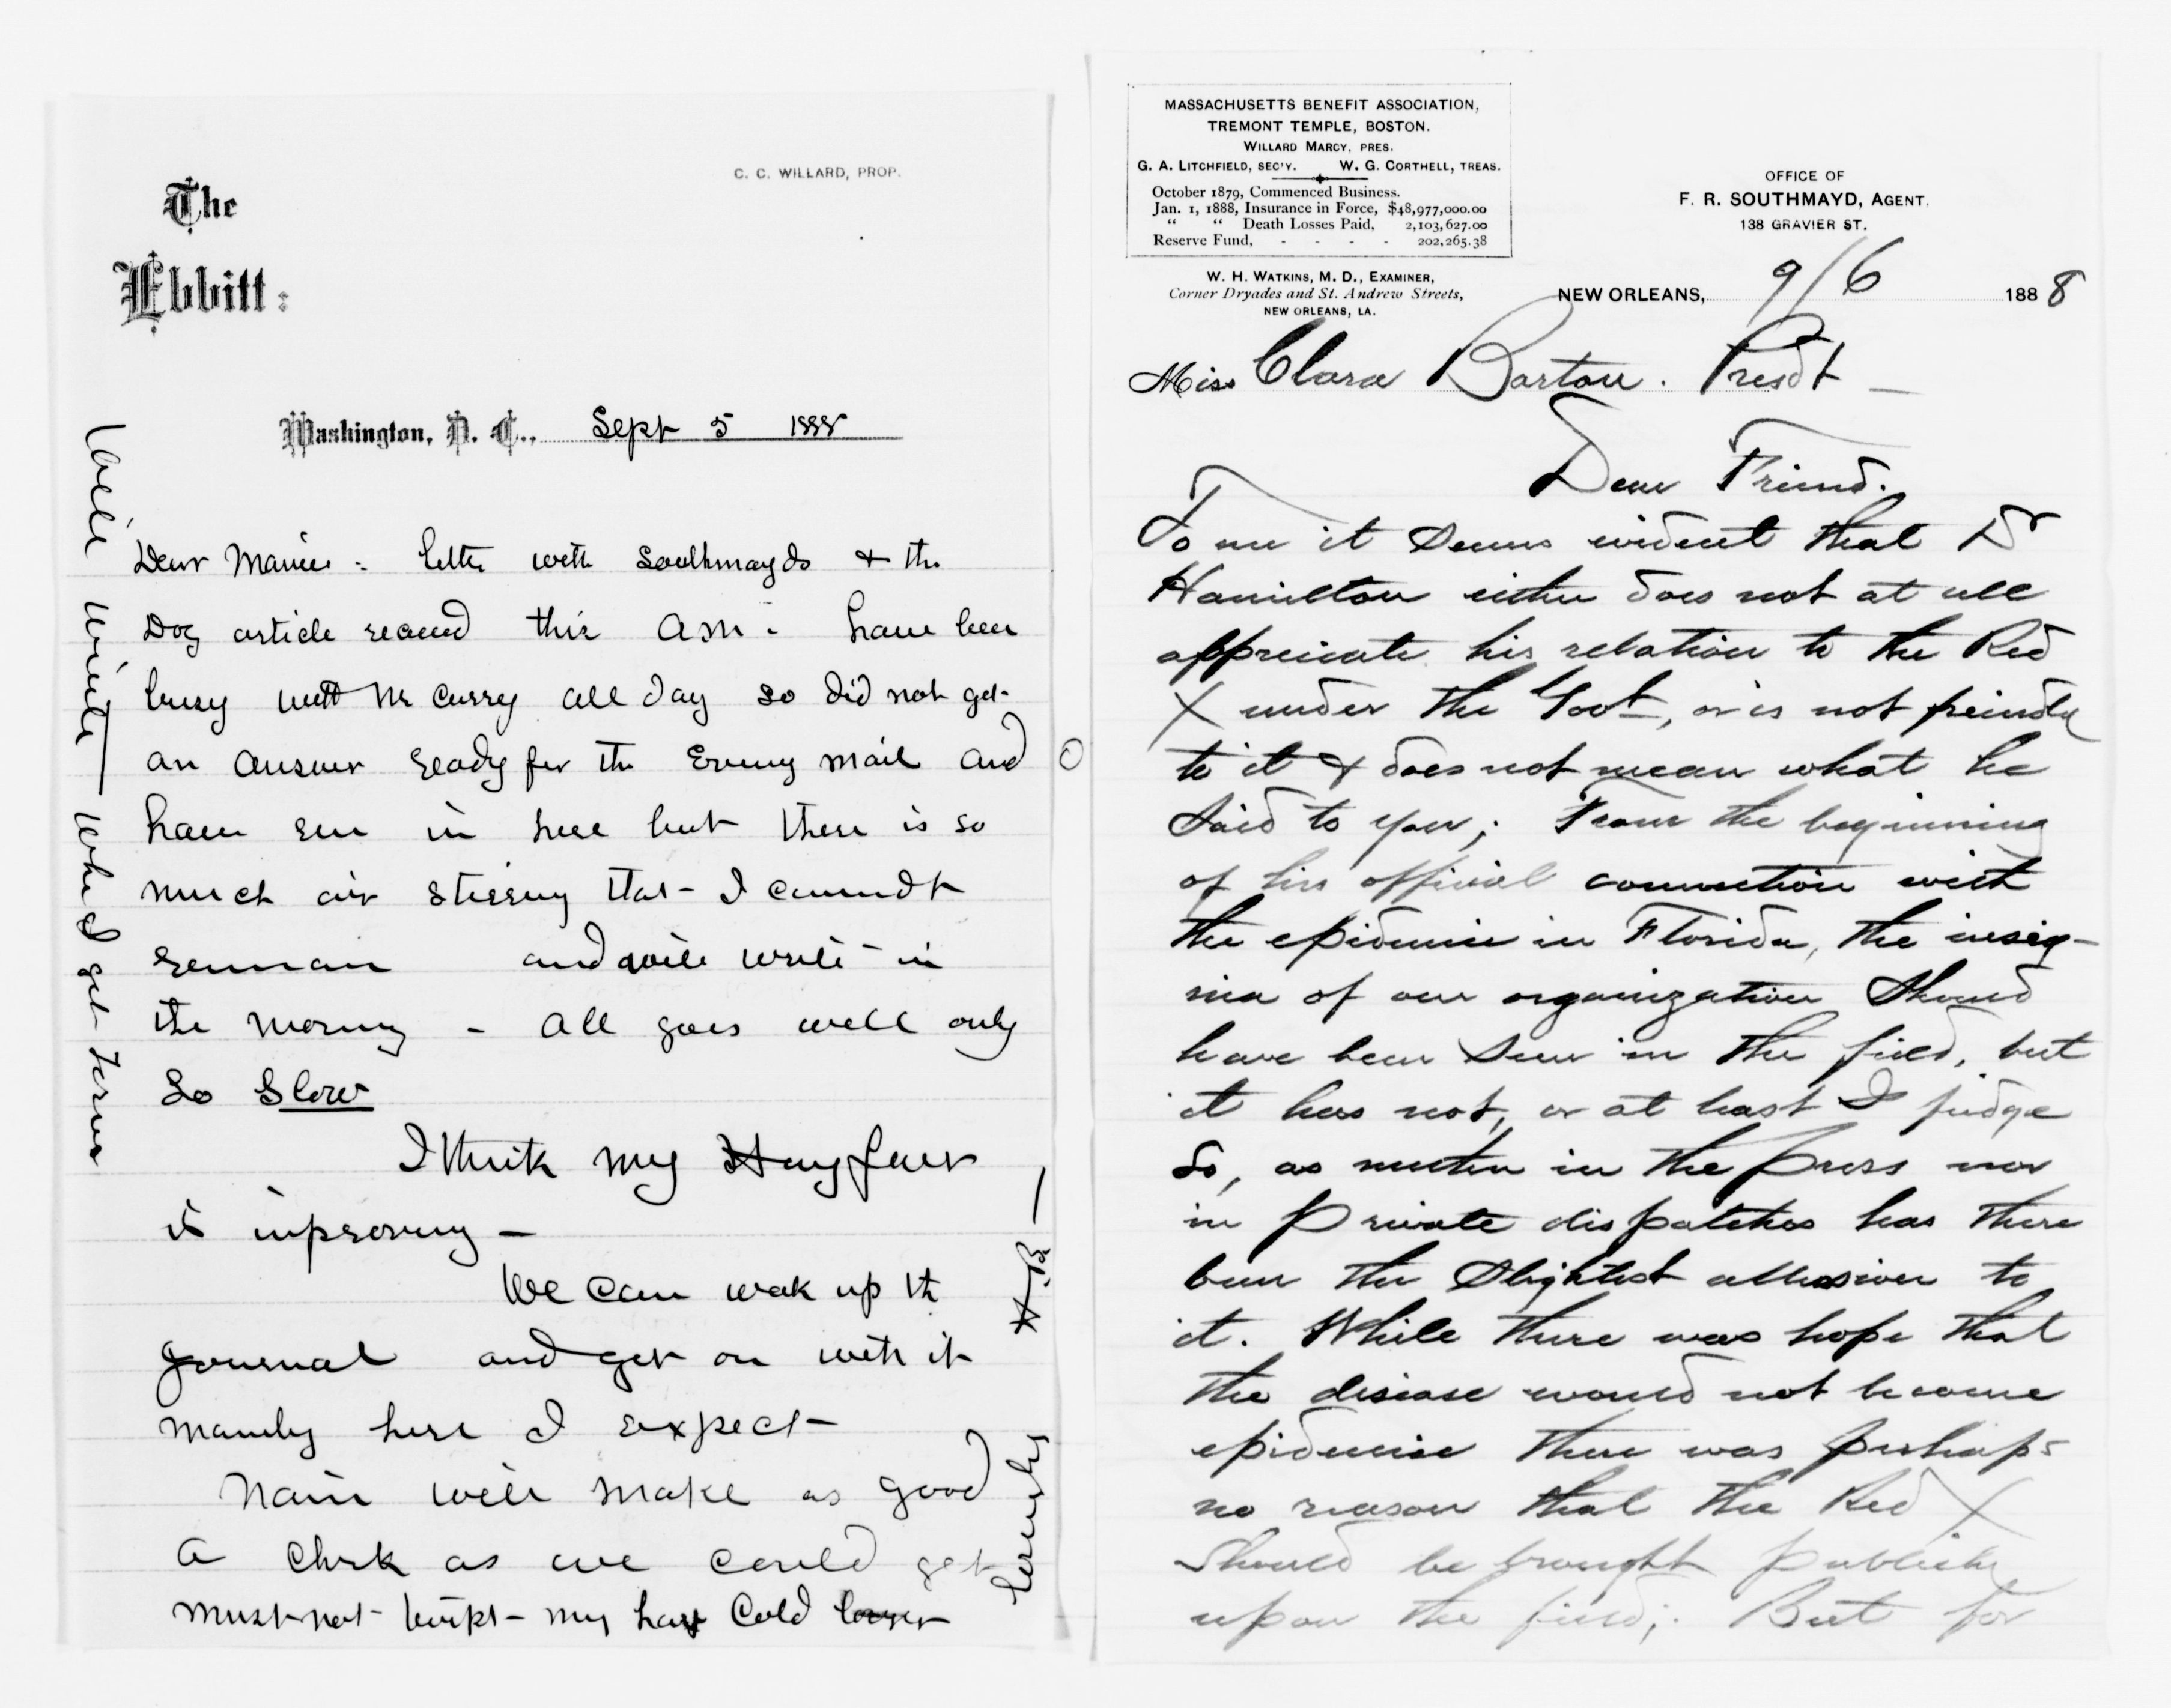 The
Ebbitt:
C. C. WILLARD, PROP.
Washington, D. C., Sept 5 1888
Dear Mamie: letter with Southmayds & the
Dog article receved this A.M. - have been
busy with Mr Curry all day so did not get
an answer ready for the Evening mail and
have run in here but there is so
much air stirring that I cannot
remain and will write in
the morning - All goes well only
so slow
I think my Hay fever
is improving -
We can work up the
journal and get on with it
mainly here I expect
will make as good
a clerk as we could get
must not my cold longer
Will write when I get
MASSACHUSETTS BENEFIT ASSOCIATION,
TREMONT TEMPLE, BOSTON.
WILLARD MARCY, PRES.
G. A. LITCHFIELD, SEC'Y. W. G. CORTHELL, TREAS.
October 1879, Commenced Business.
Jan. 1, 1888, Insurance in Force, $48,977,000.00
" " Death Losses Paid, 2,103,627.00
Reserve Fund, - - - - 202,265.38
W. H. WATKINS, M. D., EXAMINER,
Corner Dryades and St. Andrew Streets,
NEW ORLEANS, LA.
OFFICE OF
F. R. SOUTHMAYD, AGENT.
138 GRAVIER ST.
NEW ORLEANS, 9/6 1888
Miss Clara Barton. Presdt -
Dear Friend.
To me it seems evident that Dr
Hamilton either does not at all
appreciate his relation to the Red
X under the Govt, or is not friendly
to it & does not mean what he
said to you; From the beginning
of his official connection with
the epidemic in Florida, the insig-
nia of our organization should
have been seen in the field, but
it has not, or at least I judge
so, as neither in the press nor
in private dispatches has there
been the slightest allusion to
it. While there was hope that
the disease would not become
epidemic there was perhaps
no reason that the Red X
should be brought publicly
upon the field; But for